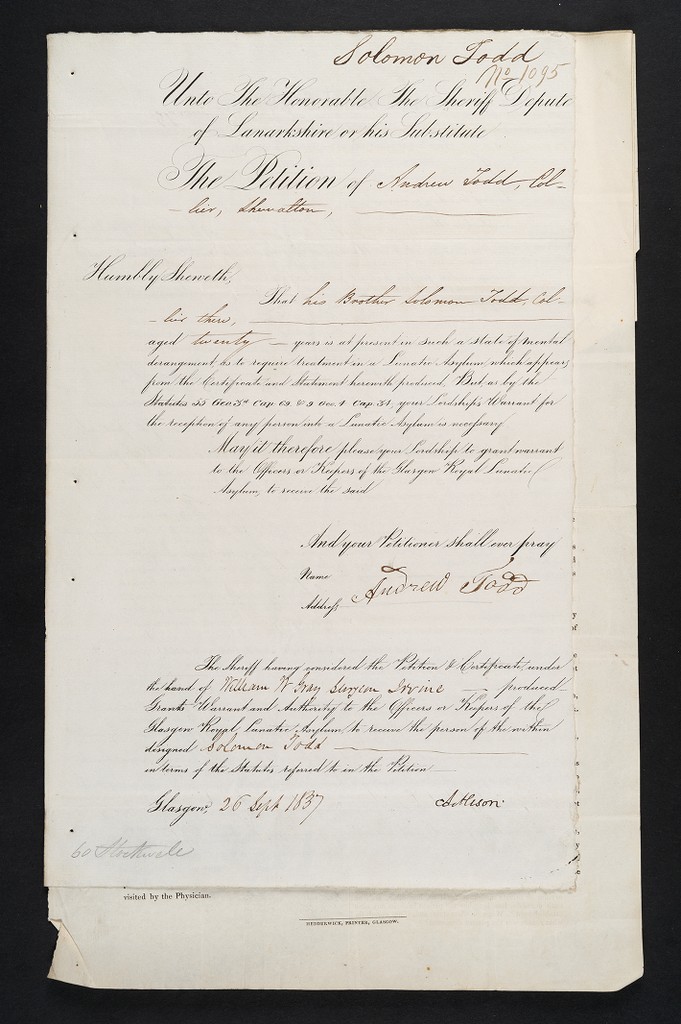 Solomon Todd
No 1095
Unto The Honorable The Sheriff Depute
of Lanarkshire or his Substitute
The Petition of Andrew Todd, Col-
-lier, Shewalton,
Humbly Sheweth,
That his Brother Solomon Todd, Col-
-lier there,
aged twenty years is at present in such a state of mental
derangement, as to require treatment in a Lunatic Asylum, which appears
from the Certificate and Statement herewith produced, But as by the
Statutes 55 Geo. 3d Cap. 69. & 9 Geo. 4 Cap. 34, your Lordship's Warrant for
the reception of any person into a Lunatic Asylum is necessary
May it therefore please your Lordship to grant warrant
to the Officers or Keepers of the Glasgow Royal Lunatic
Asylum, to receive the said
And your Petitioner shall ever pray
Name
Andrew Todd
Address
The Sheriff having considered the Petition & Certificate, under
the hand of William W Gray Surgeon Irvine produced
Grants Warrant and Authority to the Officers or Keepers of the
Glasgow Royal, Lunatic Asylum to receive the person of the within
designed Solomon Todd
in terms of the Statutes referred to in the Petition
Glasgow, 26 Sept 1837
A Alison
60 Stockwell
visited by the Physician.
HEDDERWICK, PRINTER, GLASGOW.